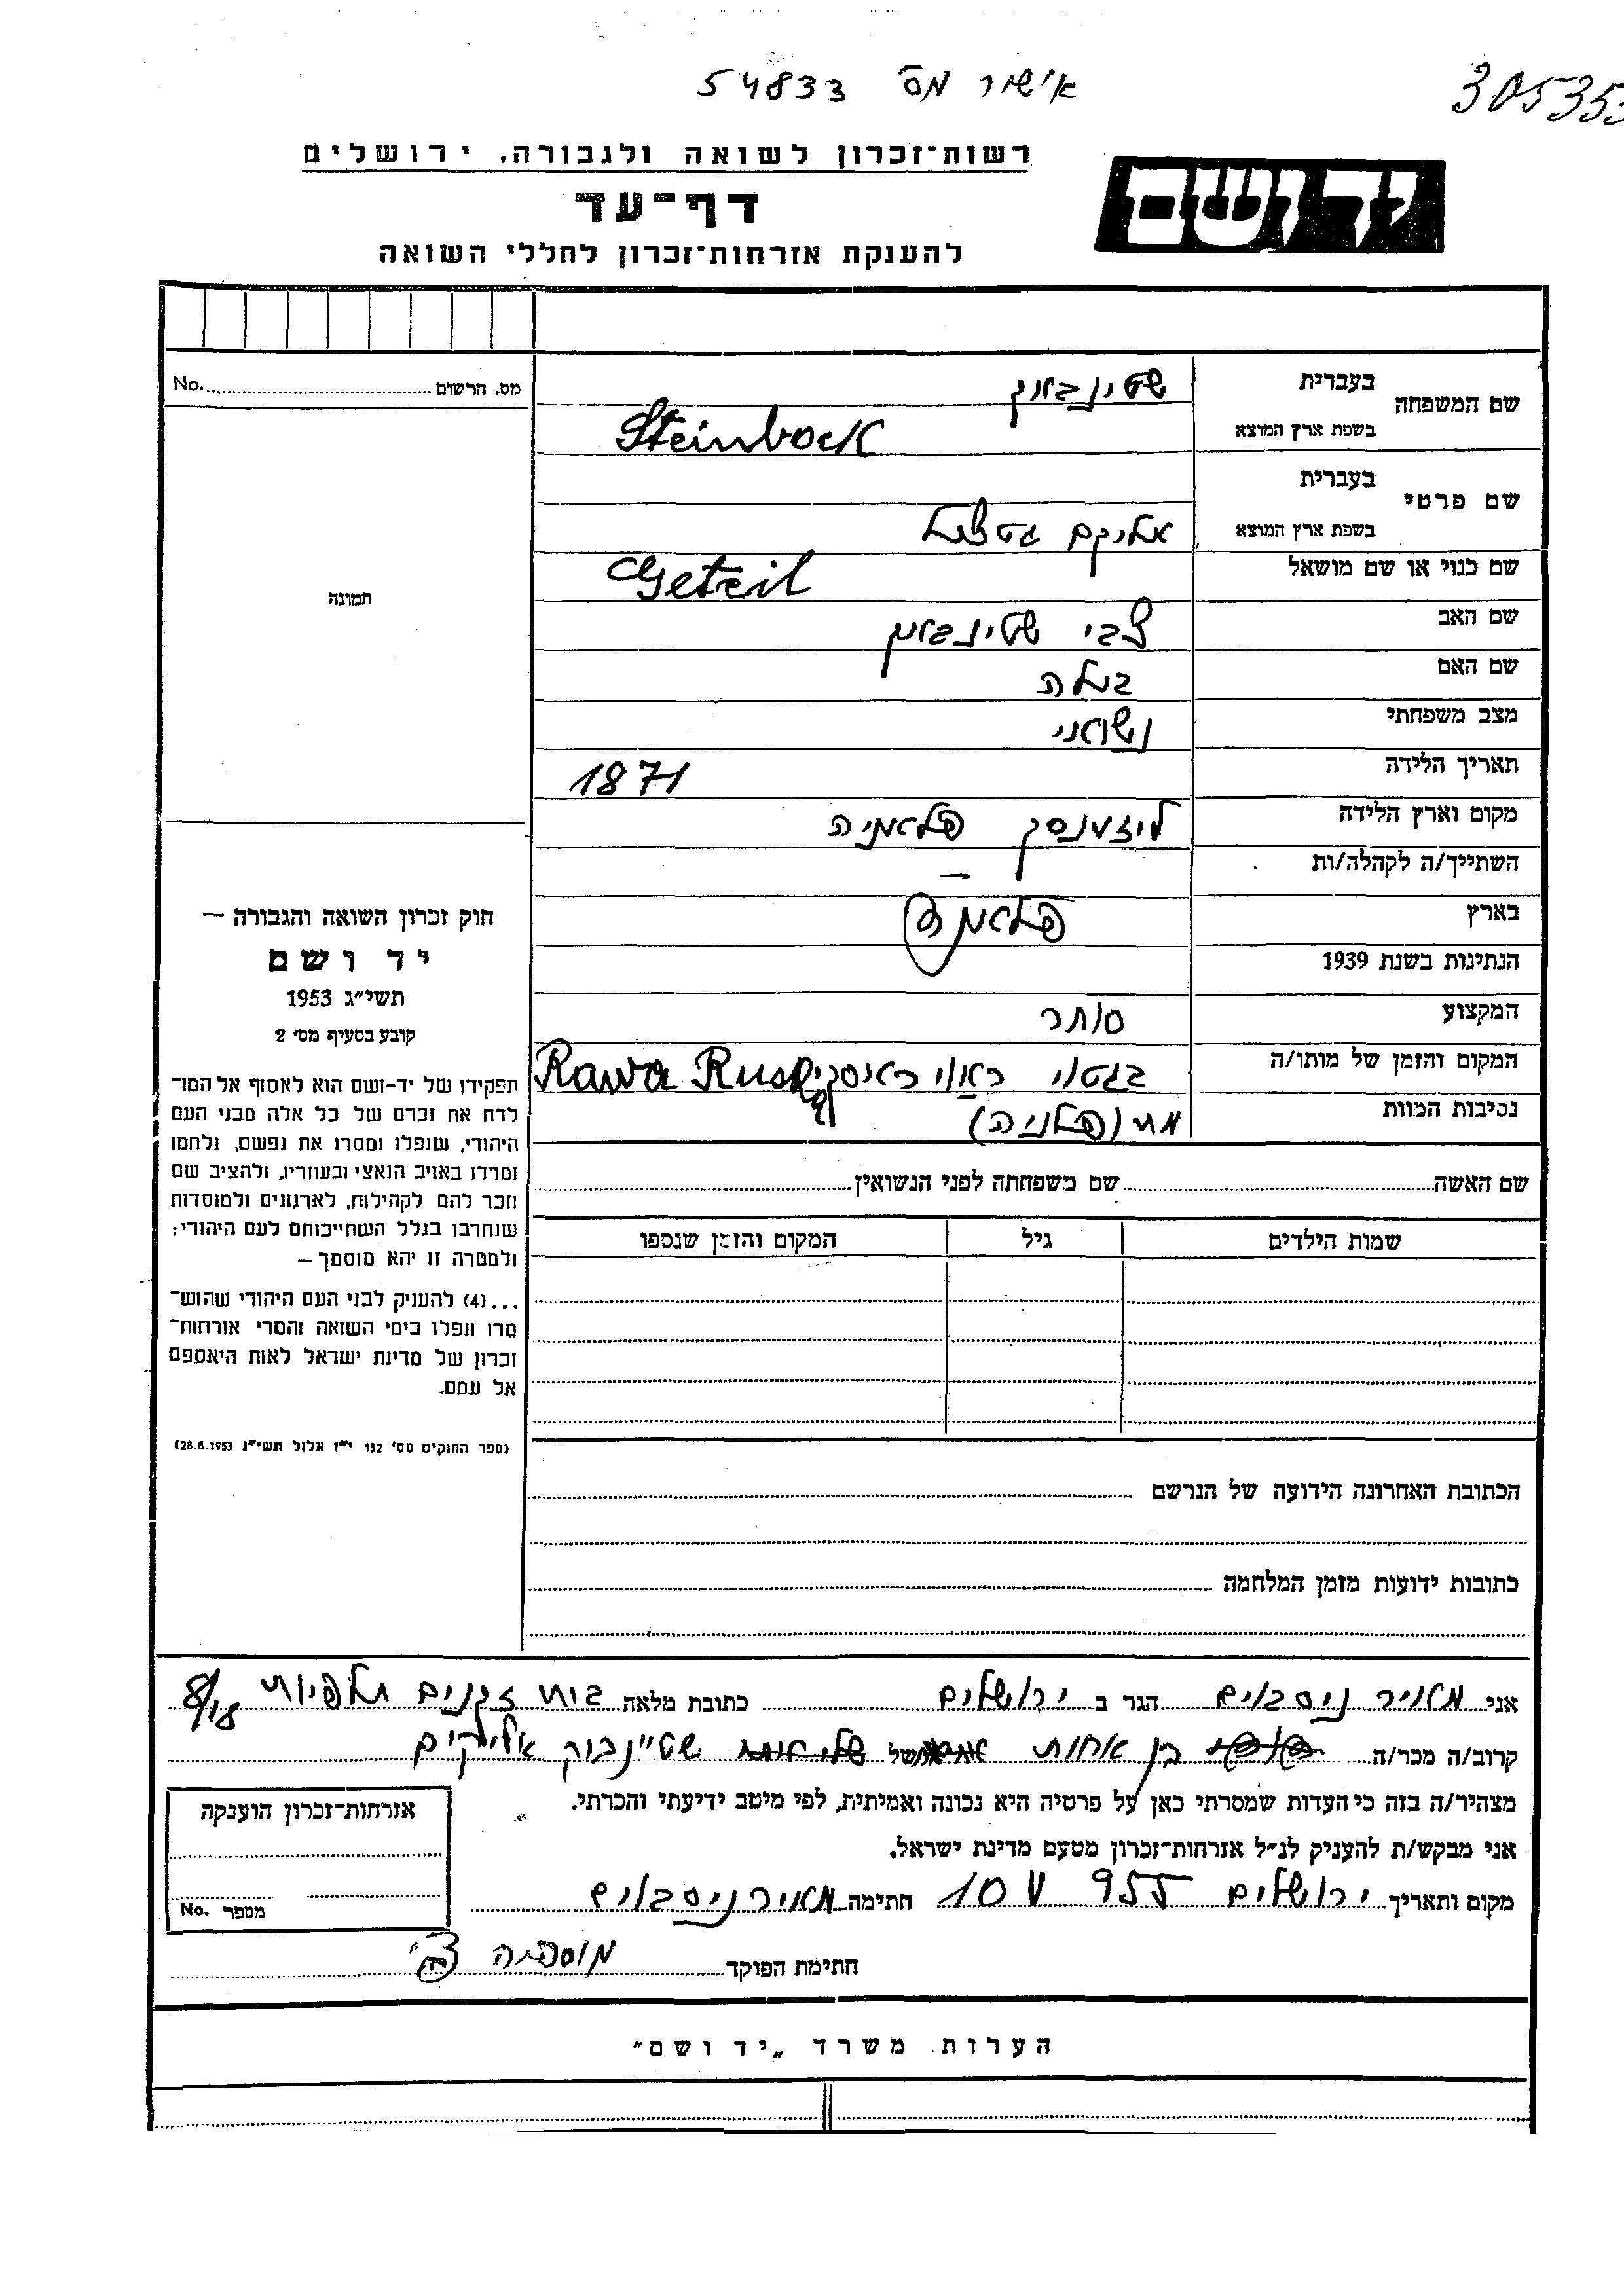 אישור מס 54833
305353
רשות־זכרון לשואה ולגבורה, ירושלים
יד ושם
דף־עד
להענקת אזרחות־זכרון לחללי השואה
מס. הרשום No.
תמונה
חוק זכרון השואה והגבורה —
יד ושם
תשי״ג 1953
קובע בסעיף מס׳ 2
תפקידו של יד-ושם הוא לאסוף אל המו־
לדת את זכרם של כל אלה מבני העם
היהודי, שנפלו ומסרו את נפשם, נלחמו
ומרדו באויב הנאצי ובעוזריו, ולהציב שם
וזכר להם לקהילות, לארגונים ולמוסדות
שנחרבו בגלל השתייכותם לעם היהודי;
ולמטרה זו יהא מוסמך —
...(4) להעניק לבני העם היהודי שהוש־
מדו ונפלו בימי השואה והמרי אזרחות־
זכרון של מדינת ישראל לאות היאספם
אל עמם.
(ספר החוקים מס׳ 132 י״ז אלול תשי״ג 28.8.1953)
שם המשפחה בעברית שטינבאוק
בשפת ארץ המוצא Steinbock
שם פרטי בעברית
בשפת ארץ המוצא אליקם גטציל
שם כנוי או שם מושאל Getzil
שם האב צבי שטינבאוק
שם האם בילה
מצב משפחתי נשואני
תאריך הלידה 1871
מקום וארץ הלידה ליזענסק פלאניה
השתייך/ה לקהלה/ות —
בארץ פלאניה
הנתינות בשנת 1939
המקצוע סוחר
המקום והזמן של מותו/ה בגטו ראווי ראוסקי Rawa Ruska
נסיבות המוות מת (פלניה)
שם האשה שם משפחתה לפני הנשואין
שמות הילדים גיל המקום והזמן שנספו
הכתובת האחרונה הידועה של הנרשם
כתובות ידועות מזמן המלחמה
אני מאיר ניסבוים הגר ב ירושלים כתובת מלאה בית זקנים תלפיות 8/18
קרוב/ה מכר/ה בן אחות של שטיינבוק אליקים
מצהיר/ה בזה כי העדות שמסרתי כאן על פרטיה היא נכונה ואמיתית, לפי מיטב ידיעתי והכרתי.
אני מבקש/ת להעניק לנ״ל אזרחות־זכרון מטעם מדינת ישראל.
מקום ותאריך ירושלים 955 V 10 חתימה מאיר ניסבוים
חתימת הפוקד
אזרחות־זכרון הוענקה
מספר No.
הערות משרד „יד ושם״